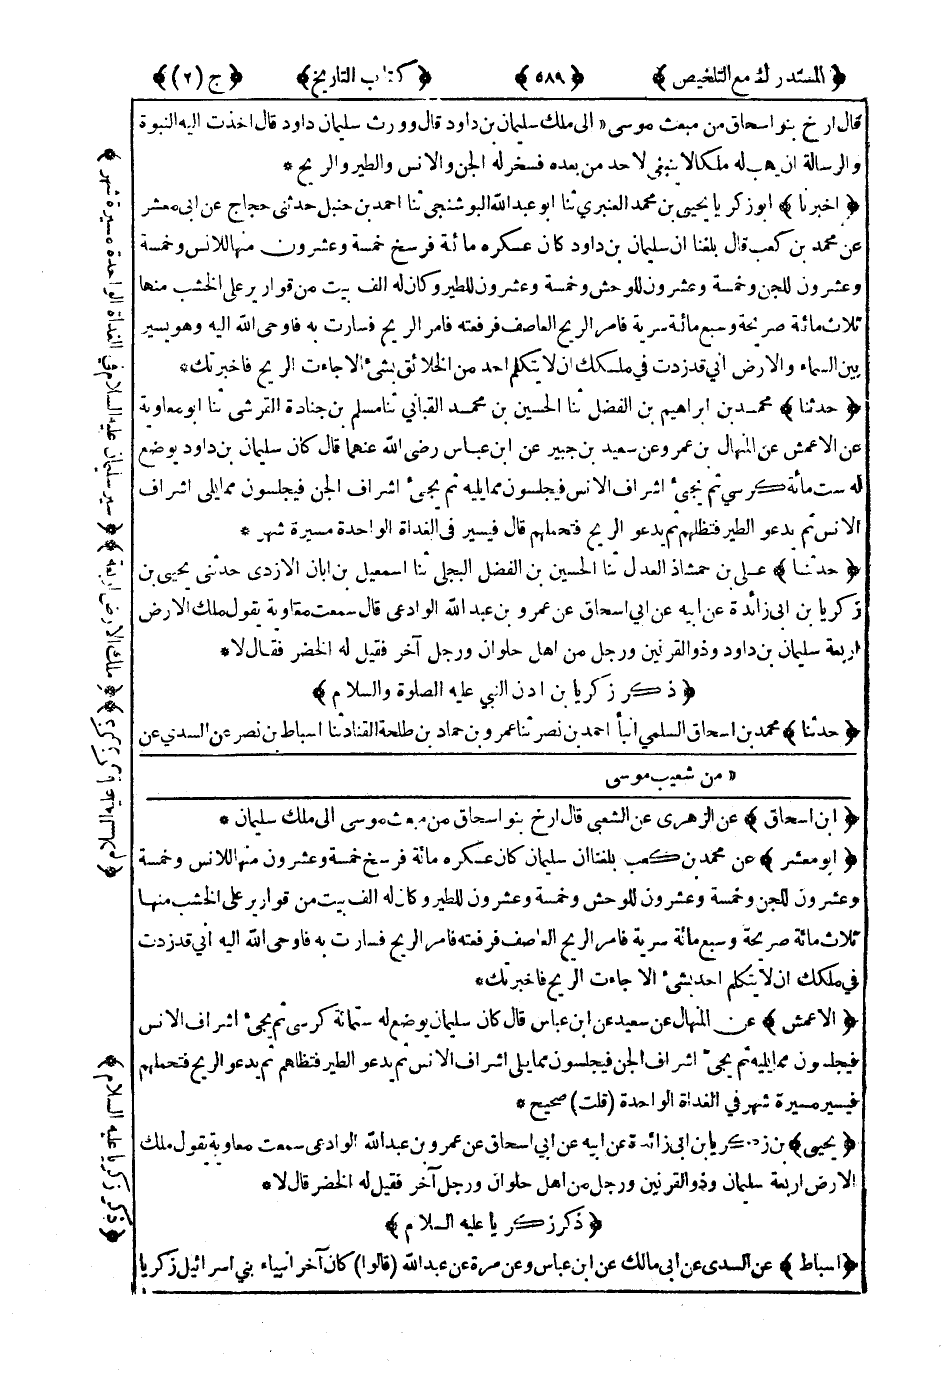 ﴿ المستدرك مع التلخيص ﴾ ﴿ ٥٨٩ ﴾ ﴿ كتاب التاريخ ﴾ ﴿ ج (٢) ﴾
قال ارخ بنو اسحاق من مبعث موسى « الى ملك سليمان بن داود قال وورث سليمان داود قال اخذت اليه النبوة
والرسالة ان يهب له ملكا لا ينبغى لاحد من بعده فسخر له الجن والانس والطير والريح *
﴿ اخبرنا ﴾ ابو زكريا يحيى بن محمد العنبري ثنا ابو عبد الله البوشنجى ثنا احمد بن حنبل حدثنى حجاج عن ابى معشر
عن محمد بن كعب قال بلغنا ان سليمان بن داود كان عسكره مائة فرسخ خمسة وعشرون منها للانس وخمسة
وعشرون للجن وخمسة وعشرون للوحش وخمسة وعشرون للطير وكان له الف بيت من قوارير على الخشب منها
ثلاث مائة صريحة وسبع مائة سرية فامر الريح العاصف فرفعته فامر الريح فسارت به فاوحى الله اليه وهو يسير
بين السماء والارض أني قد زدت في ملكك ان لا يتكلم احد من الخلائق بشئ الا جاءت الريح فاخبرتك*
﴿ حدثنا ﴾ محمد بن ابراهيم بن الفضل ثنا الحسين بن محمد القباني ثنا مسلم بن جنادة القرشي ثنا ابو معاوية
عن الاعمش عن المنهال بن عمرو عن سعيد بن جبير عن ابن عباس رضى الله عنهما قال كان سليمان بن داود يوضع
له ست مائة كرسي ثم يجئ اشراف الانس فيجلسون مما يليه ثم يجئ اشراف الجن فيجلسون مما يلى اشراف
الانس ثم يدعو الطير فتظلهم ثم يدعو الريح فتحملهم قال فيسير في الغداة الواحدة مسيرة شهر *
﴿ حدثنا ﴾ علي بن حمشاذ العدل ثنا الحسين بن الفضل البجلي ثنا اسمعيل بن ابان الازدى حدثنى يحيى بن
زكريا بن ابى زائدة عن ابيه عن ابى اسحاق عن عمرو بن عبد الله الوادعى قال سمعت معاوية يقول ملك الارض
اربعة سليمان بن داود وذو القرنين ورجل من اهل حلوان ورجل آخر فقيل له الخضر فقال لا*
﴿ ذكر زكريا بن ادن النبي عليه الصلوة والسلام ﴾
﴿ حدثنا ﴾ محمد بن اسحاق السلمي انبأ احمد بن نصر ثنا عمرو بن حماد بن طلحة القناد ثنا اسباط بن نصر عن السدي عن
« من شعيب موسى
﴿ ابن اسحاق ﴾ عن الزهرى عن الشعبي قال ارخ بنو اسحاق من مبعث موسى الى ملك سليمان *
﴿ ابو معشر ﴾ عن محمد بن كعب بلغنا ان سليمان كان عسكره مائة فرسخ خمسة وعشرون منها للانس وخمسة
وعشرون للجن وخمسة وعشرون للوحش وخمسة وعشرون للطير وكان له الف بيت من قوارير على الخشب منها
ثلاث مائة صريحة وسبع مائة سرية فامر الريح العاصف فرفعته فامر الريح فسارت به فاوحى الله اليه أني قد زدت
في ملكك ان لا يتكلم احد بشئ الا جاءت الريح فاخبرتك*
﴿ الاعمش ﴾ عن المنهال عن سعيد عن ابن عباس قال كان سليمان يوضع له ستمائة كرسى ثم يجئ اشراف الانس
فيجلسون مما يليه ثم يجئ اشراف الجن فيجلسون مما يلى اشراف الانس ثم يدعو الطير فتظلهم ثم يدعو الريح فتحملهم
فيسير مسيرة شهر في الغداة الواحدة (قلت) صحيح *
﴿ يحيى ﴾ بن زكريا بن ابى زائدة عن ابيه عن ابي اسحاق عن عمرو بن عبد الله الوادعى سمعت معاوية يقول ملك
الارض اربعة سليمان وذو القرنين ورجل من اهل حلوان ورجل آخر فقيل له الخضر قال لا*
﴿ ذكر زكريا عليه السلام ﴾
﴿ اسباط ﴾ عن السدى عن ابى مالك عن ابن عباس وعن مرة عن عبد الله (قالوا) كان آخر انبياء بني اسرائيل زكريا
﴿ سير سليمان عليه السلام في الغداة الواحدة مسيرة شهر ﴾
﴿ ملك الارض اربعة ﴾
﴿ ذكر زكريا عليه السلام ﴾